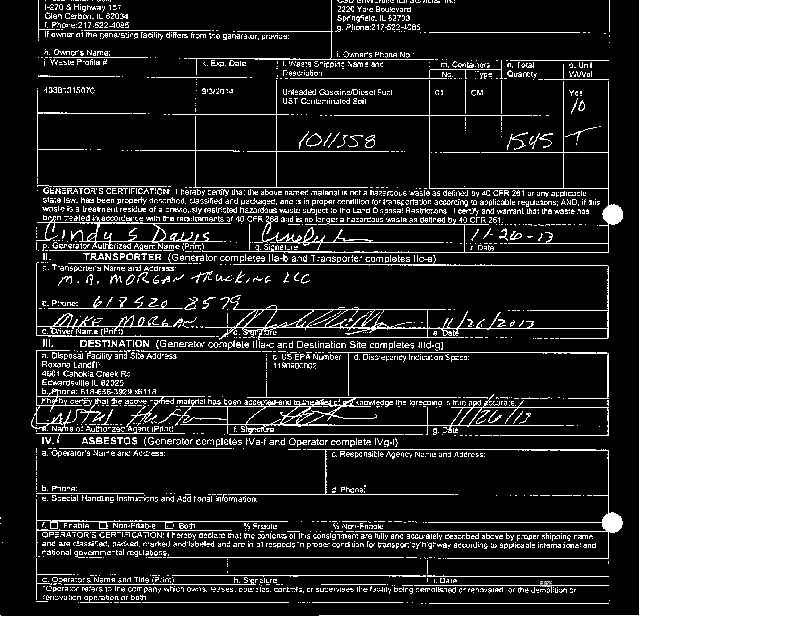 I-270 S Highway 157
Glen Carbon, IL 62034
f. Phone:217-522-4085
2220 Yale Boulevard
Springfield, IL 62703
g. Phone:217-522-4085
If owner of the generating facility differs from the generator, provide:
h. Owner's Name:
i. Owner's Phone No.:
j. Waste Profile #
k. Exp. Date
l. Waste Shipping Name and Description
m. Containers
No.
Type
n. Total Quantity
o. Unit Wt/Vol
9/3/2014
Unleaded Gasoline/Diesel Fuel
UST Contaminated Soil
01
CM
Yds
10
1011358
1545
T
GENERATOR'S CERTIFICATION: I hereby certify that the above named material is not a hazardous waste as defined by 40 CFR 261 or any applicable
state law, has been properly described, classified and packaged, and is in proper condition for transportation according to applicable regulations; AND, if this
waste is a treatment residue of a previously restricted hazardous waste subject to the Land Disposal Restrictions. I certify and warrant that the waste has
been treated in accordance with the requirements of 40 CFR 268 and is no longer a hazardous waste as defined by 40 CFR 261.
Cindy S Davis
11-26-13
p. Generator Authorized Agent Name (Print)
q. Signature
r. Date
II. TRANSPORTER (Generator completes IIa-b and Transporter completes IIc-e)
a. Transporter's Name and Address:
M.A. MORGAN TRUCKING LLC
b. Phone: 618 520 8579
MIKE MORGAN
11/26/2013
c. Driver Name (Print)
d. Signature
e. Date
III. DESTINATION (Generator complete IIIa-c and Destination Site completes IIId-g)
a. Disposal Facility and Site Address
c. US EPA Number
d. Discrepancy Indication Space:
Roxana Landfill
1190900002
4601 Cahokia Creek Rd
Edwardsville IL 62025
b. Phone: 618-656-3929 x6118
I hereby certify that the above named material has been accepted and to the best of my knowledge the foregoing is true and accurate.
11/26/13
e. Name of Authorized Agent (Print)
f. Signature
g. Date
IV. ASBESTOS (Generator completes IVa-f and Operator complete IVg-i)
a. Operator's Name and Address:
c. Responsible Agency Name and Address:
b. Phone:
d. Phone:
e. Special Handling Instructions and Additional Information:
f. Friable Non-Friable Both % Friable % Non-Friable
OPERATOR'S CERTIFICATION: I hereby declare that the contents of this consignment are fully and accurately described above by proper shipping name
and are classified, packed, marked and labeled and are in all respects in proper condition for transport by highway according to applicable international and
national governmental regulations.
g. Operator's Name and Title (Print)
h. Signature
i. Date
*Operator refers to the company which owns, leases, operates, controls, or supervises the facility being demolished or renovated, or the demolition or
renovation operation or both